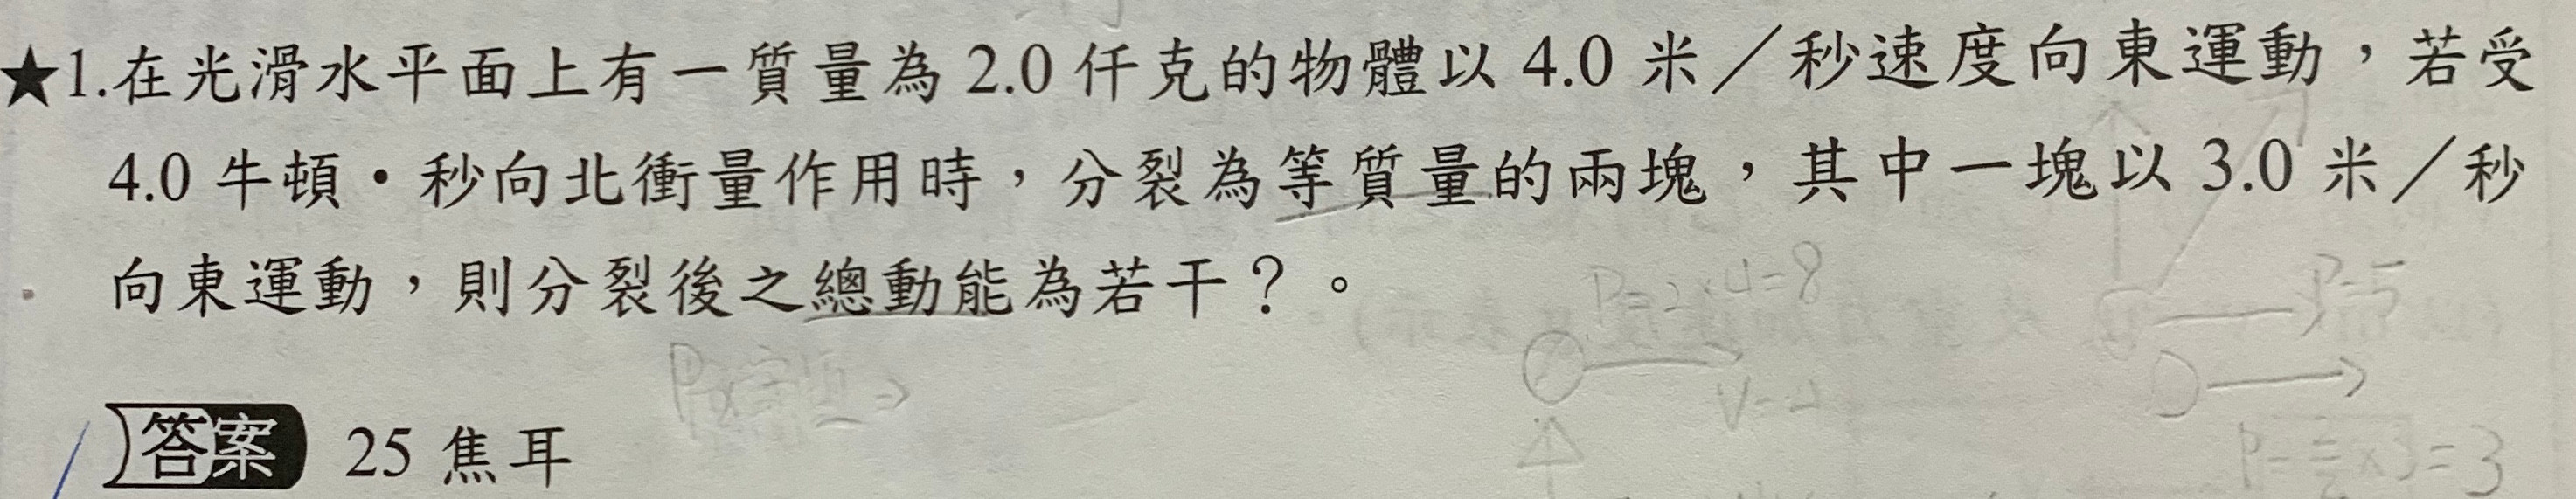 ★1.在光滑水平面上有一質量為 2.0 仟克的物體以 4.0 米／秒速度向東運動，若受
4.0 牛頓・秒向北衝量作用時，分裂為等質量的兩塊，其中一塊以 3.0 米／秒
向東運動，則分裂後之總動能為若干？。
P=2×4=8
P=5
V=4
答案 25 焦耳
=3